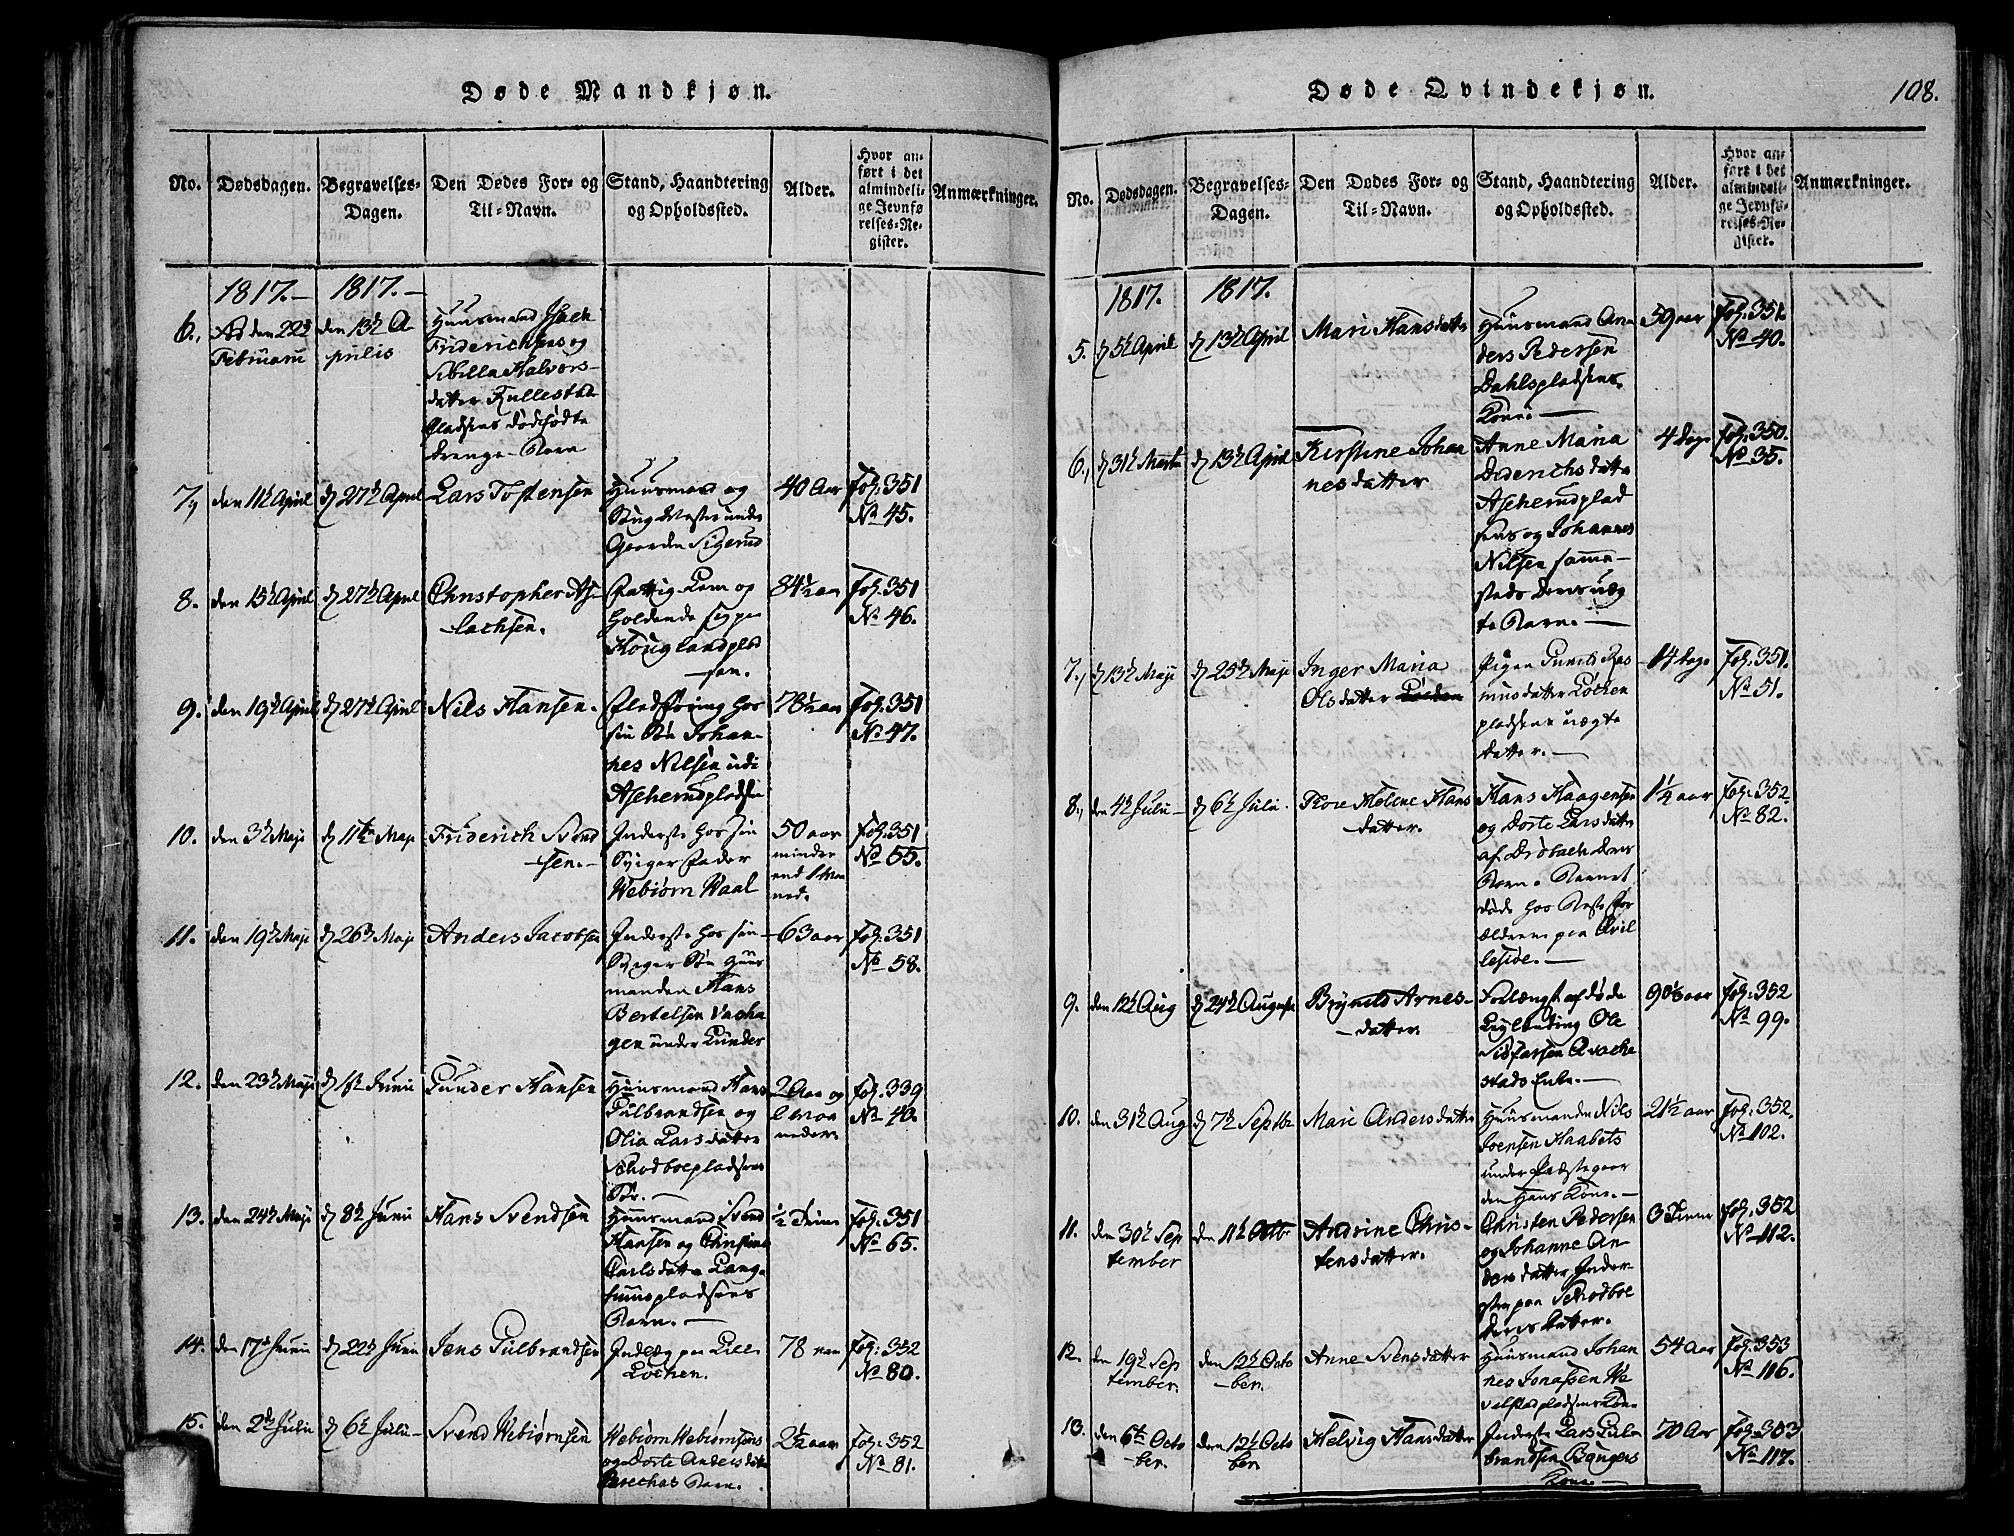 Døde Mandkjøn.
No.
Dødsdagen.
Begravelses-
Dagen.
Den Dødes For- og
Til-Navn.
Stand, Haandtering
og Opholdssted.
Alder.
Hvor an-
ført i det
almindeli-
ge Jevnfø-
relses-Re-
gister.
Anmærkninger.
1817.—
1817.—
6.,
den 22d
Februarii
den 13d A
prilis
Huusmand
Friderichsens og
Sibilla Halvors-
datter
Pladsens dødfødte
Drenge-Barn
7,
den 11t April
d 27d April
Lars Tostensen
Huusmand og
Gaarden Sigerud
40 Aar
Fol: 351
No 45.
8.
den 15d April
d 27d April
Christopher As-
lachsen.
Fattig-Lem og
Holdende sig paa
Houglandplad
sen.
84½ aar
Fol: 351
No 46.
9.
den 19d April
d 27d April
Nils Hansen.
hos
sin Søn Johan-
nes Nilsen
Ascherudpladsen
78½ aar
Fol: 351
No 47.
10.
den 3d Maji
d 11te Maji
Friderich Svend
sen.—
Inderste hos sin
Sviger Fader
Webiørn Waal
50 aar
minder
end 1 Maa
ned.
Fol: 351
No 55.
11.
den 19d Maji
d 26d Maji
Anders Jacobsen
Inderste hos sin
Sviger Søn Huus
manden Hans
Bertelsen Vacha
gen under Lunder
63 aar
Fol: 351
No 58.
12.
den 23d Maji
d 1st Junii
Gunder Hansen
Huusmand Hans
Gulbrandsen og
Olia Larsdatter
Schodboepladsens
Søn.—
2 Aar og
Maa
neder.
Fol: 339
No 40.
13.
den 24d Maji
d 8d Junii
Hans Svendsen
Huusmand Svend
Hansen og Christine
Carlsdatter Lang-
huuspladsens
Barn.—
½ Time
Fol: 351
No 65.
14.
den 17d Junii
d 22d Junii
Jens Gulbrandsen
paa Lille
Løchen.
78 aar
Fol: 352
No 80.
15.
den 2den Julii
d 6d Julii—
Svend Webiørnsen
Webiørn Webiørnsens
og Dorte Anders datter
Barn.
2½ aar
Fol: 352
No 81.
Døde Qvindekjøn.
108.
No.
Dødsdagen.
Begravelses-
Dagen.
Den Dødes For- og
Til-Navn.
Stand, Haandtering
og Opholdssted.
Alder.
Hvor an-
ført i det
almindeli-
ge Jevnfø-
relses-Re-
gister.
Anmærkninger.
1817.
1817.
5.
d 5d April
d 13d April
Mari Hansdatter
Huusmand An
ders Pedersen
Dahlspladsens
Kone.—
59 aar
Fol: 351.
No 40.
6.,
d 31d Martii
d 13d April
Kirstine Johan
nesdatter
Anne Maria
Diderichsdatter
Ascherudplad
sens og Johannes
Nilsen samme-
steds deres uæg
te Barn.—
4 dage
Fol: 350.
No 35.
7.,
d 13d Maji
d 25d Maji
Inger Maria
Olsdatter
Pigen Gunild Ras
musdatter Løchen
pladsens uægte
datter.—
14 dage
Fol: 351.
No 51.
8.,
den 4d Julii—
d 6d Julii.
Helene Hans
datter.
Hans Haagensen
og Dorte Larsdatter
af Drøbach deres
Barn. Barnet
døde hos Beste For
ældrene paa Qvil
leside.—
1¼ aar
Fol: 352.
No 82.
9.
den 12d Aug
d 24d August
Brynild Arnes-
datter.
Forlængst afdøde
Ole
Enke.—
90 aar
Fol: 352
No 99.
10.
den 31d Aug
d 7d Septbr
Mari Anders datter
Huusmanden Nils
Joensen Haabets
under Præstegaar
den Hans Kone.—
21½ aar
Fol: 352.
No 102.
11.
den 30d Sep
tember
den 11d Octbr
Andrine Chris-
tensdatter.
Christen Pedersen
og Johanne An-
ders datter Inder-
ster paa Schodboe
deres datter.
3 Timer
Fol: 352
No 112.
12.
den 19d Sep
tember.
den 12d Octo
ber.
Anne Svens datter
Huusmand Johan
nes Jonassen
54 Aar
Fol: 353
No 116.
13.
den 6te Octo
ber.
den 12d Octo
ber.
Helvig Hansdatter
Inderste Lars Gul-
brandsen Baugers
Kone.—
70 Aar
Fol: 353
No 117.